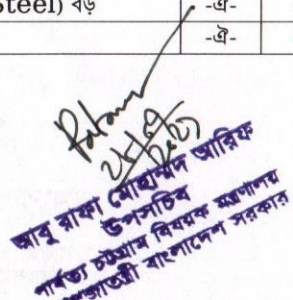 Steel) বড় -ঐ-
-ঐ-
আবু রাফা মোহাম্মদ আরিফ
উপসচিব
পার্বত্য চট্টগ্রাম বিষয়ক মন্ত্রণালয়
গণপ্রজাতন্ত্রী বাংলাদেশ সরকার